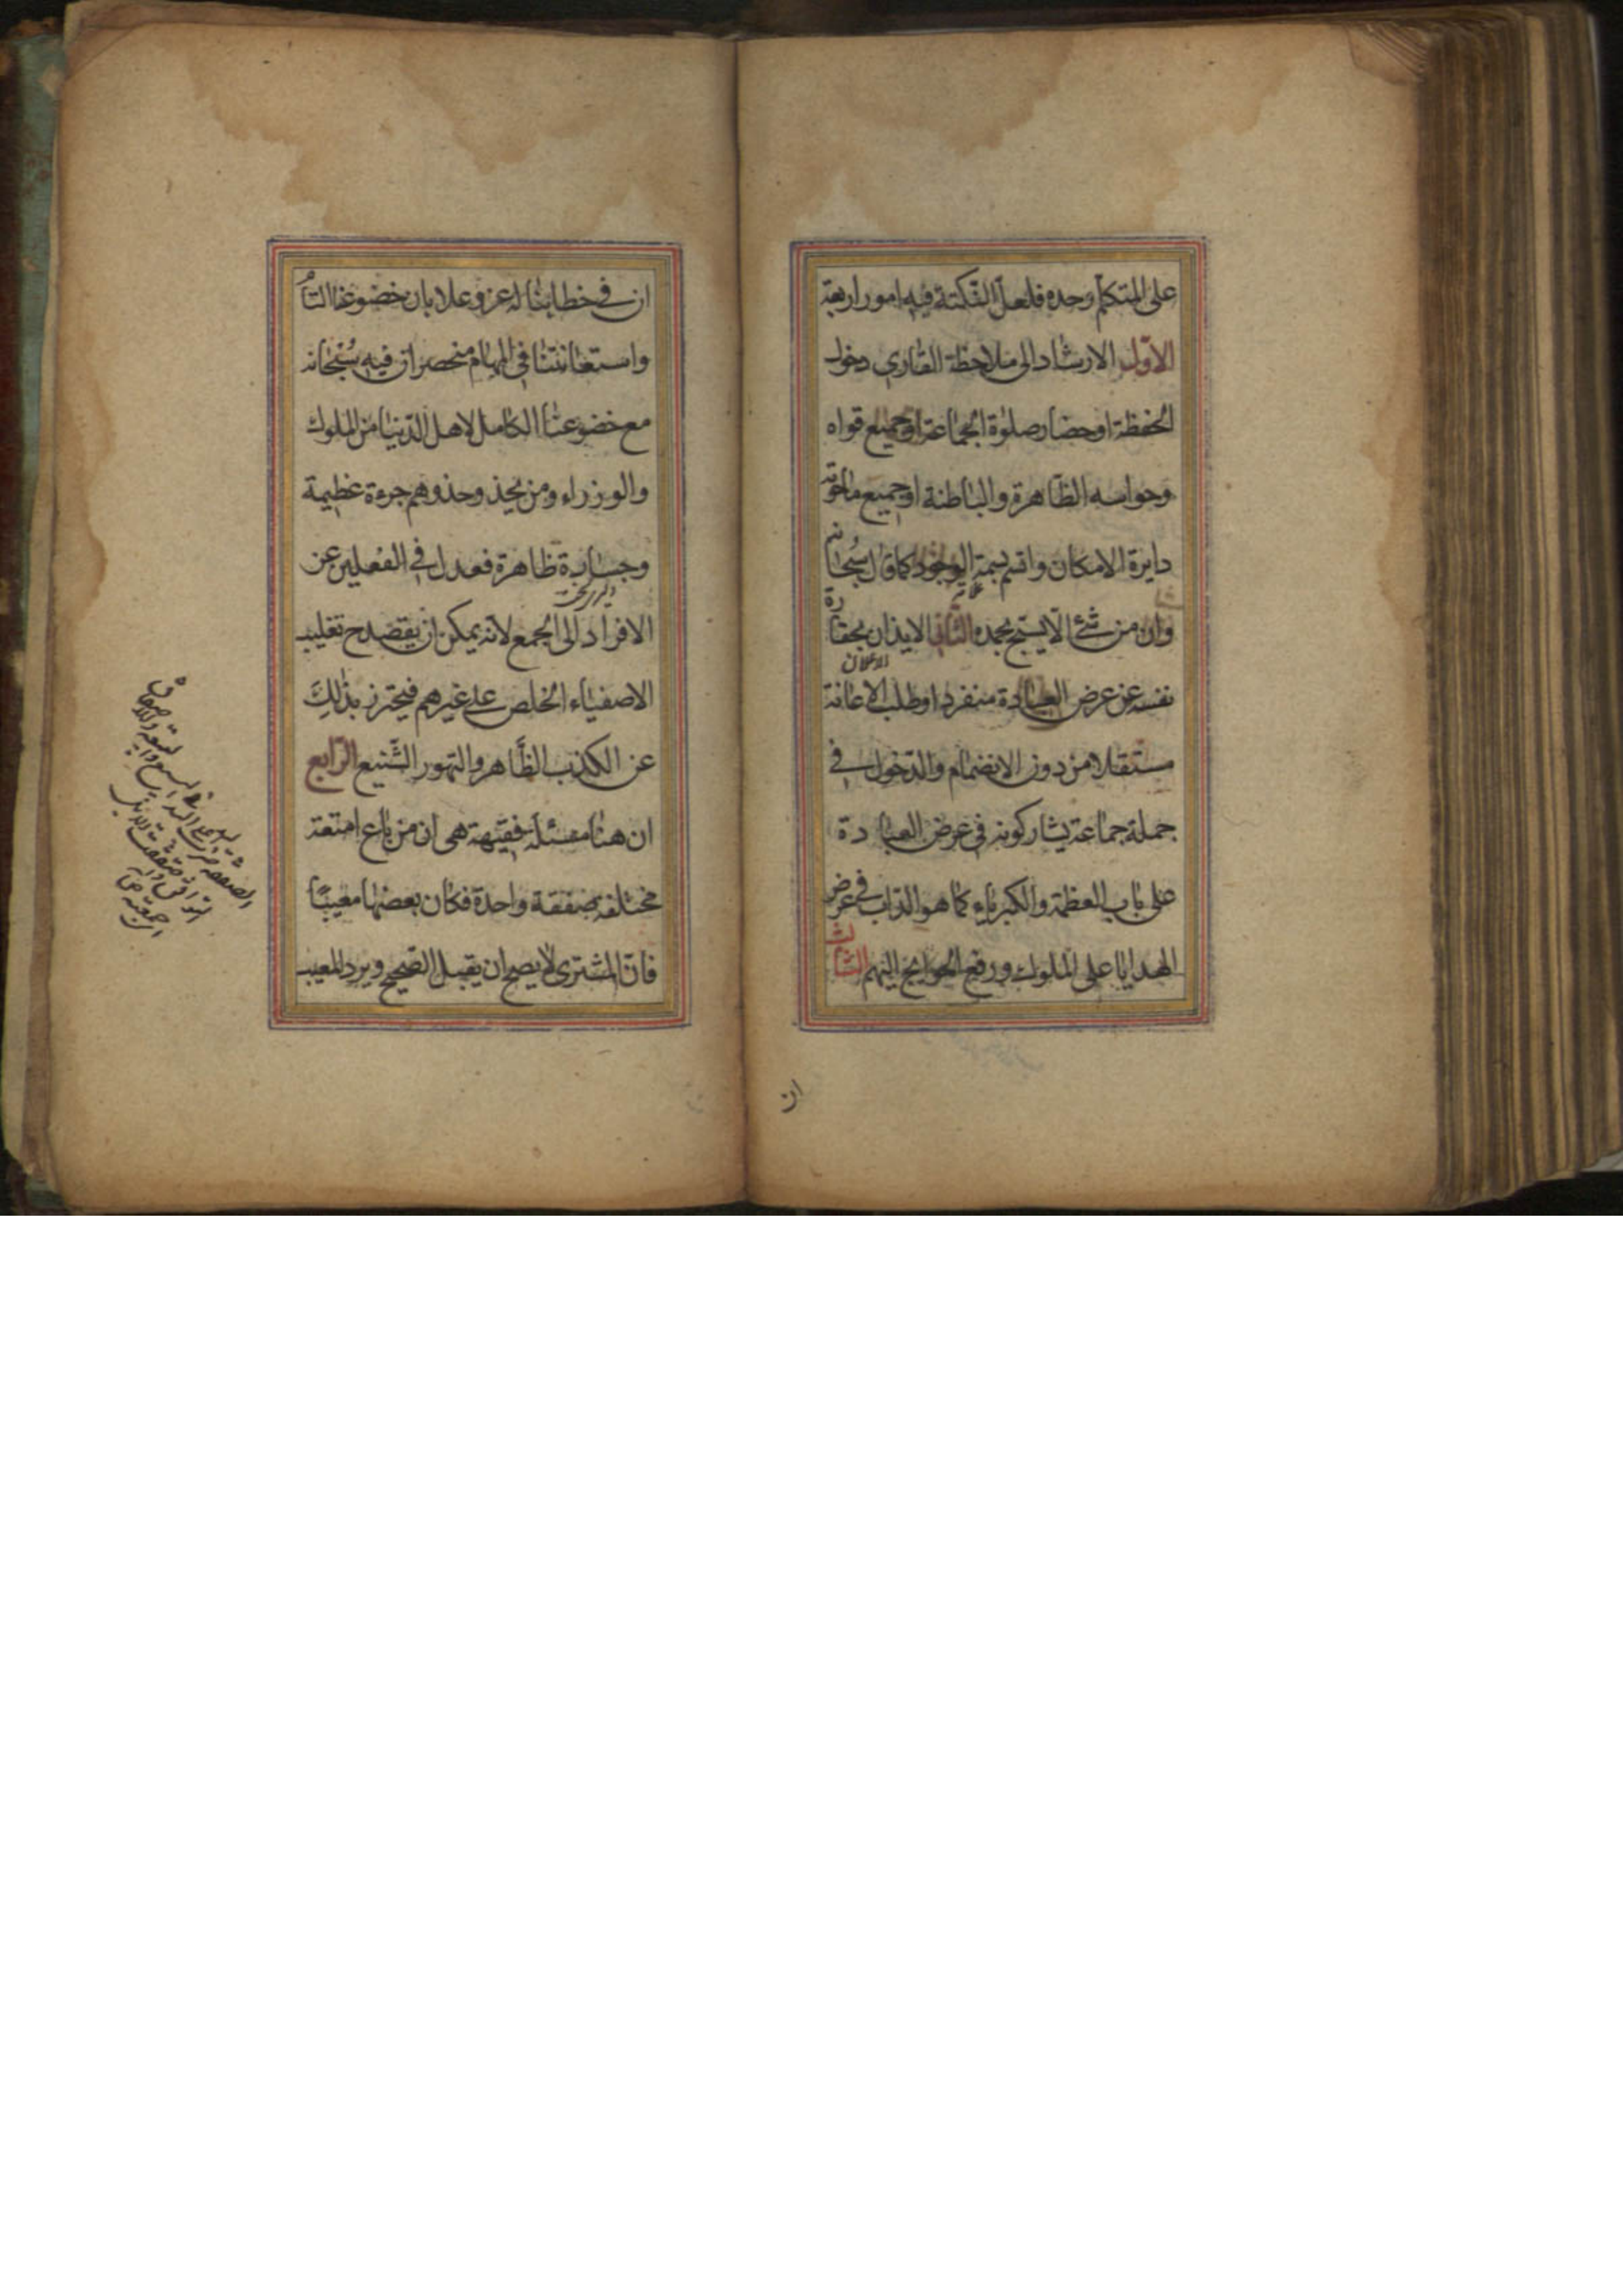 على المتكلم وحده فلعل النكتة فيه امور اربعة
الاول الارشاد الى ملاحظة القاري دخول
الحفظة او حضار صلوة الجماعة او جميع قواه
وحواسه الظاهرة والباطنة او جميع ما حوته
دايرة الامكان واتسم بسمة الوجود كما قال سبحانه
وان من شئ الا يسبح بحمده الثاني الايذان بحقارة
نفسه عن عرض العبادة منفردا وطلب الاعانة
الاعلان
مستقلا من دون الانضمام والدخول في
جملة جماعة يشاركونه في عرض العبادة
على باب العظمة والكبرياء كما هو الداب في عرض
الهدايا على الملوك ورفع الحوايج اليهم الثالث
ان
ان في خطابنا له عز وعلا بان خضوعنا التام
واستعانتنا في المهام منحصران فيه سبحانه
مع خضوعنا الكامل لاهل الدنيا من الملوك
والوزراء ومن يحذو حذوهم جرءة عظيمة
وجسارة ظاهرة فعدل في الفعلين عن
الافراد الى الجمع لانه يمكن ان يقصد ح تغليب
الاصفياء الخلص على غيرهم فيحترز بذلك
عن الكذب الظاهر والتهور الشنيع الرابع
ان هنا مسئلة فقيهة هى ان من باع امتعة
مختلفة صفقة واحدة فكان بعضها معيبا
فان المشترى لا يصح ان يقبل الصحيح ويرد المعيب